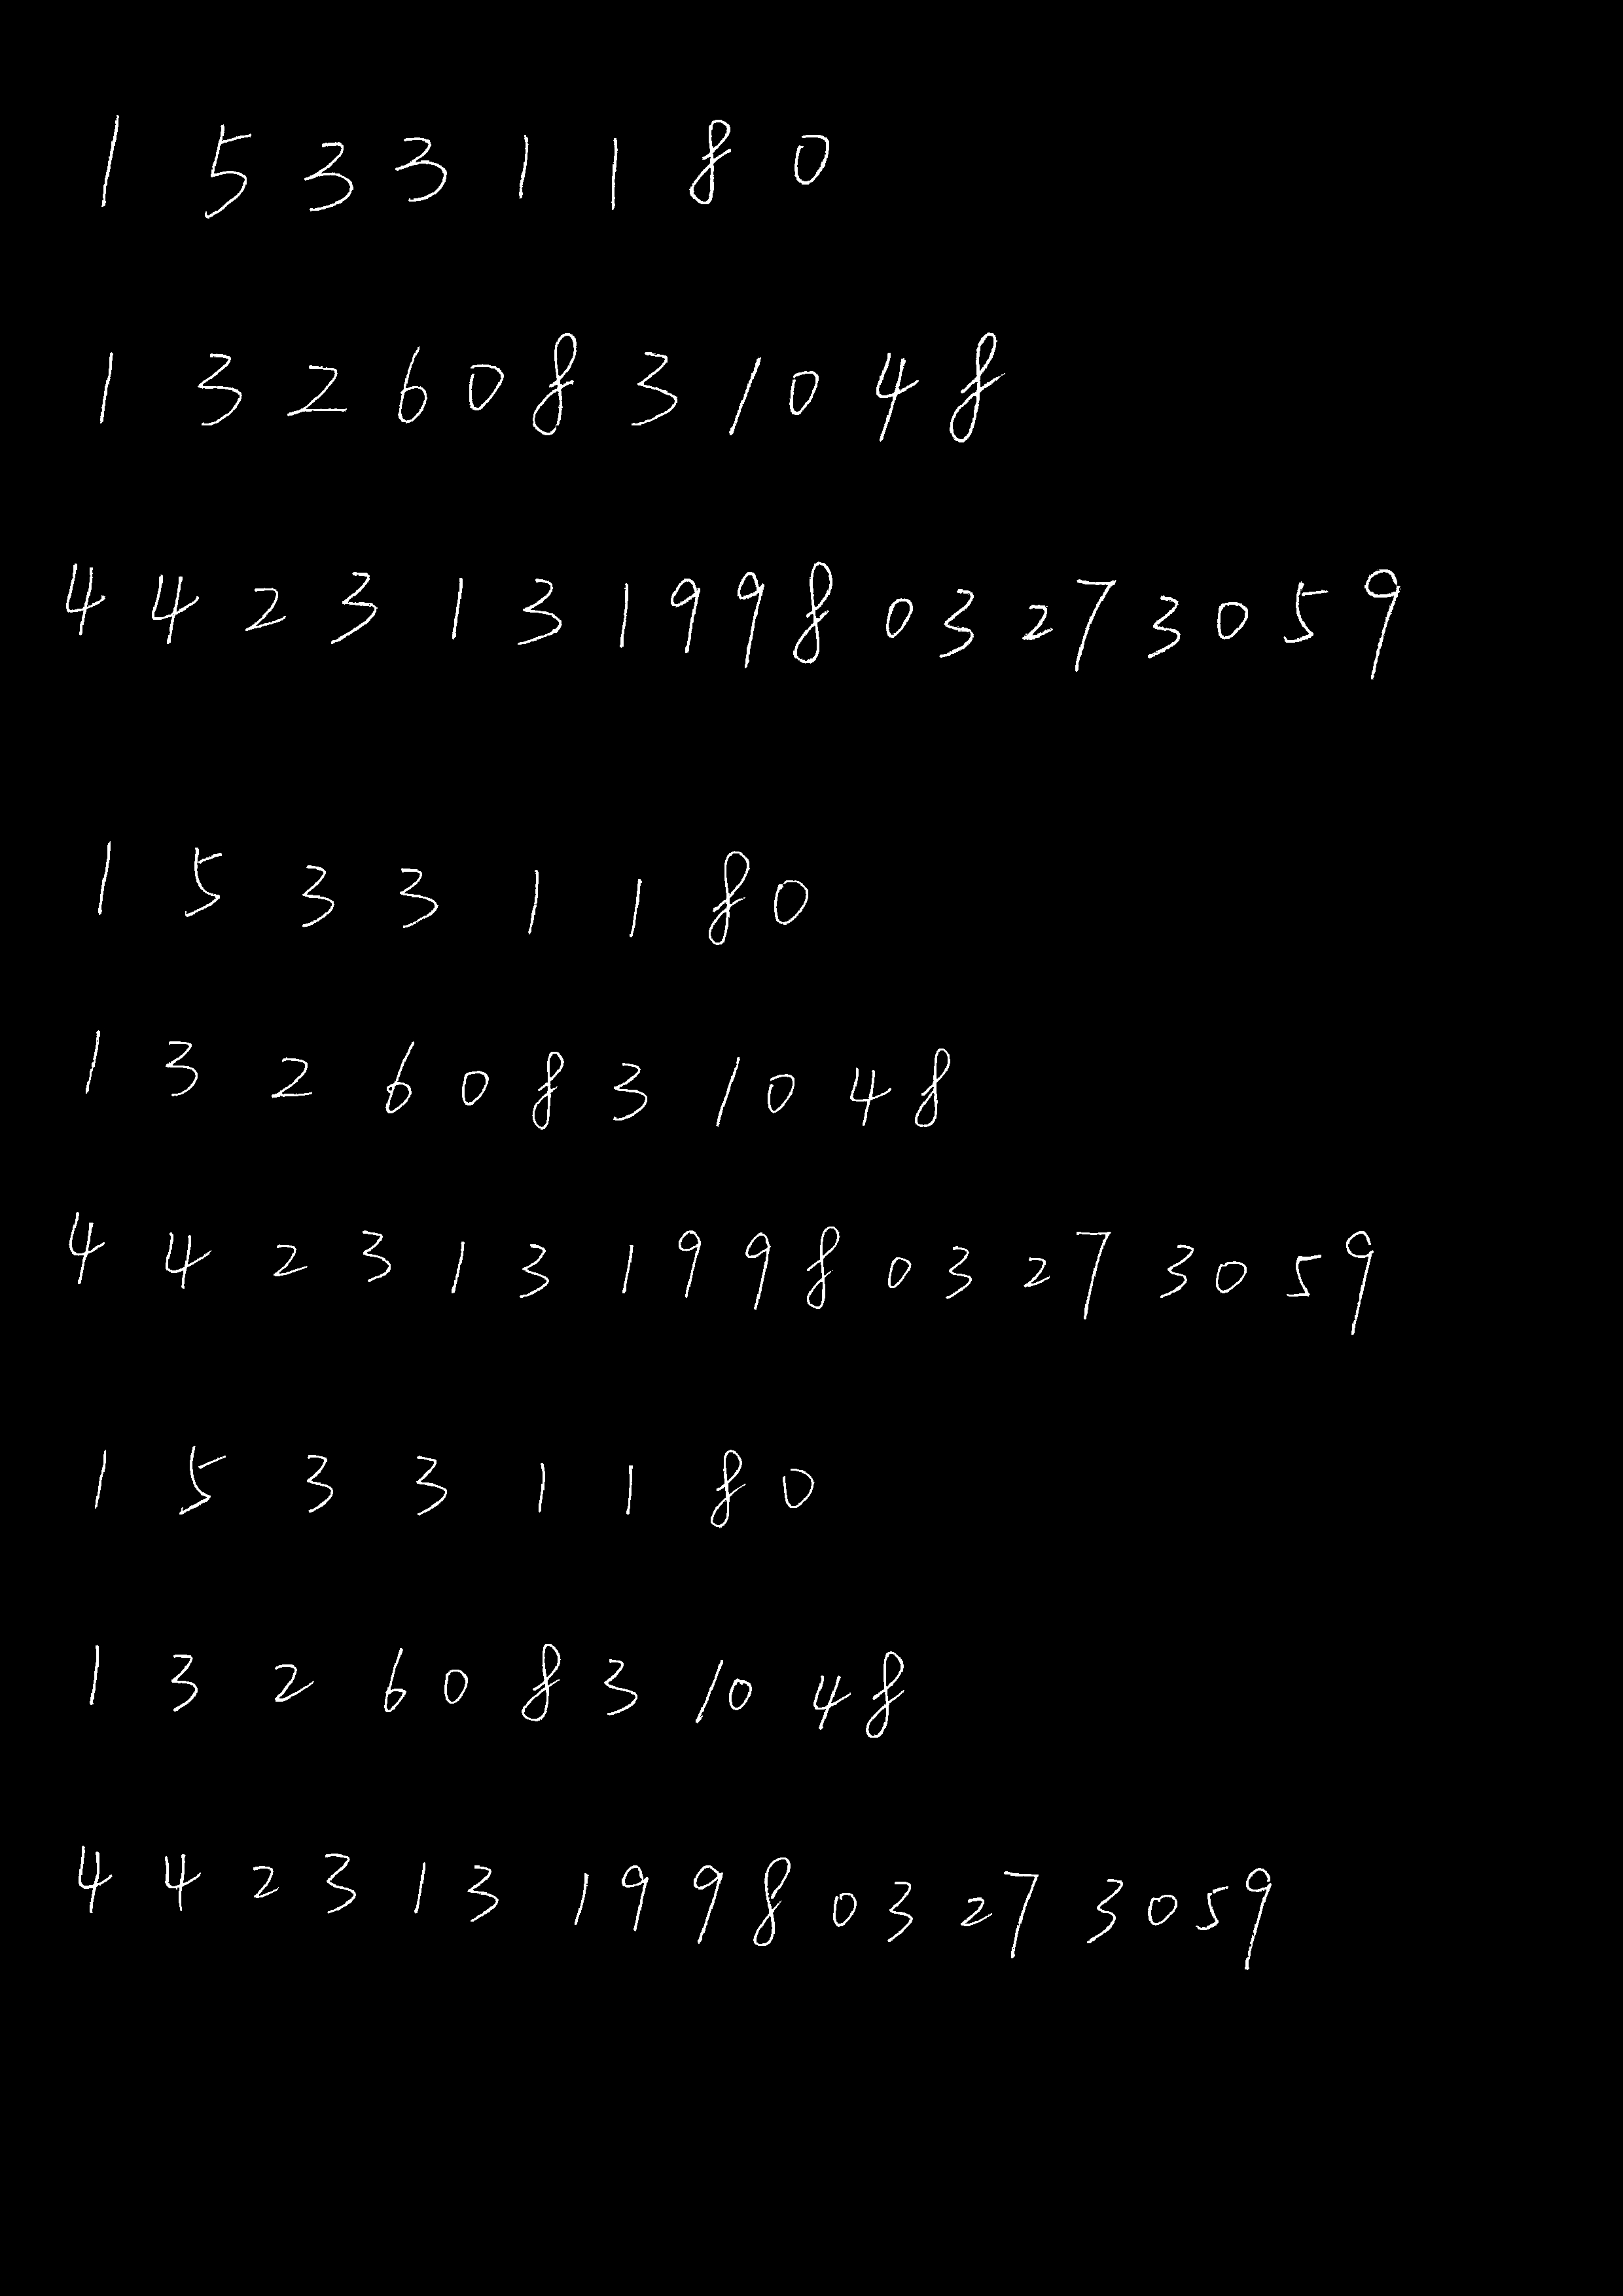 1 5 3 3 1 1 8 0
1 3 2 6 0 8 3 1 0 4 8
4 4 2 3 1 3 1 9 9 8 0 3 2 7 3 0 5 9
1 5 3 3 1 1 8 0
1 3 2 6 0 8 3 1 0 4 8
4 4 2 3 1 3 1 9 9 8 0 3 2 7 3 0 5 9
1 5 3 3 1 1 8 0
1 3 2 6 0 8 3 1 0 4 8
4 4 2 3 1 3 1 9 9 8 0 3 2 7 3 0 5 9